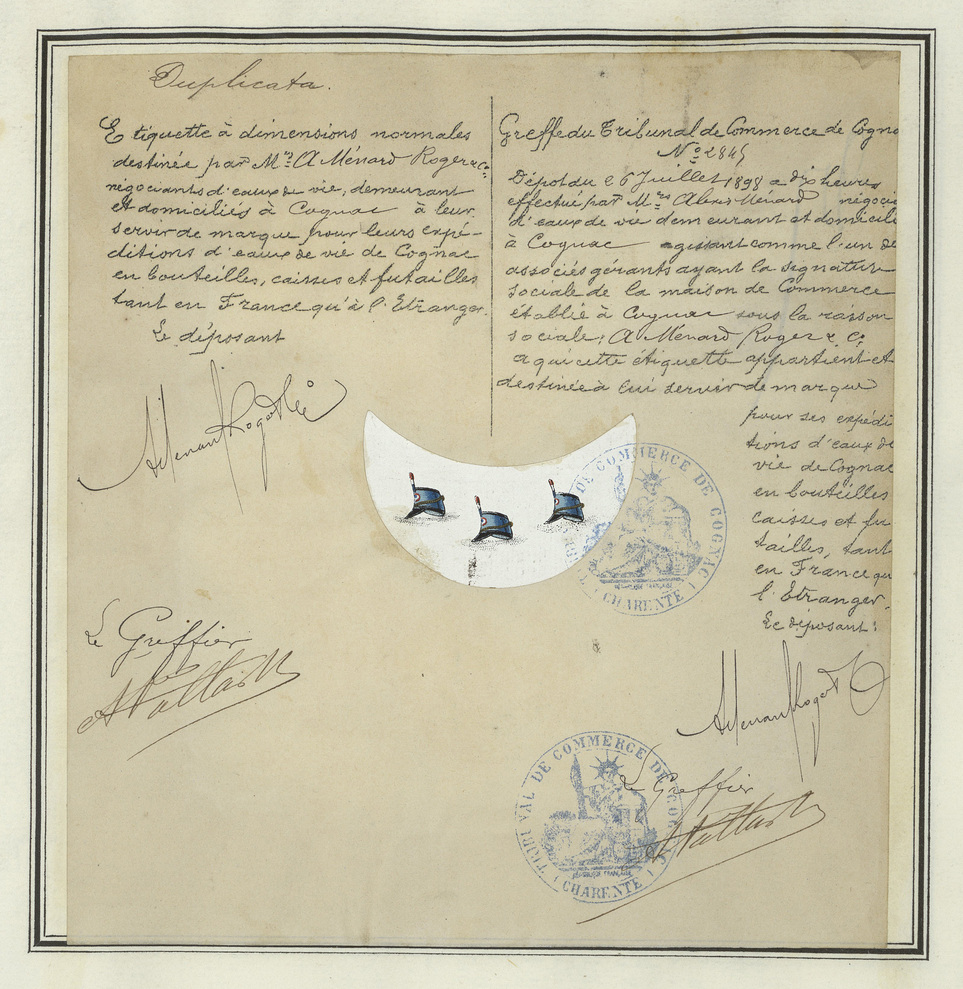 Duplicata.
Etiquette à dimensions normales
destinée par Mrs A Ménard Roger & Co.
négociants d'eaux de vie, demeurant
et domiciliés à Cognac à leur
servir de marque pour leurs expé-
ditions d'eaux de vie de Cognac
en bouteilles, caisses et futailles
tant en France qu'à l'Etranger.
Le déposant
AMenard Roger & Cie
Le Greffier
Greffe du Tribunal de Commerce de Cogna
No 2845
Dépôt du 26 Juillet 1898 a dix heures
effectué par Mr Alexis Ménard négoci
d'eaux de vie demeurant et domicilié
à Cognac agissant comme l'un de
associés gérants ayant la signature
sociale de la maison de Commerce
établie à Cognac sous la raison
sociale; A Ménard Roger & Co.
a qui cette étiquette appartient et
destinée à lui servir de marque
pour ses expédi
tions d'eaux de
vie de Cognac
en bouteilles
caisses et fu
tailles, tant
en France qu
l'Etranger.
Le déposant:
AMenard Roger & C
Le Greffier
DE COMMERCE DE COGNAC
CHARENTE
TRIBUNAL DE COMMERCE DE COGNAC
RÉPUBLIQUE FRANÇAISE
CHARENTE